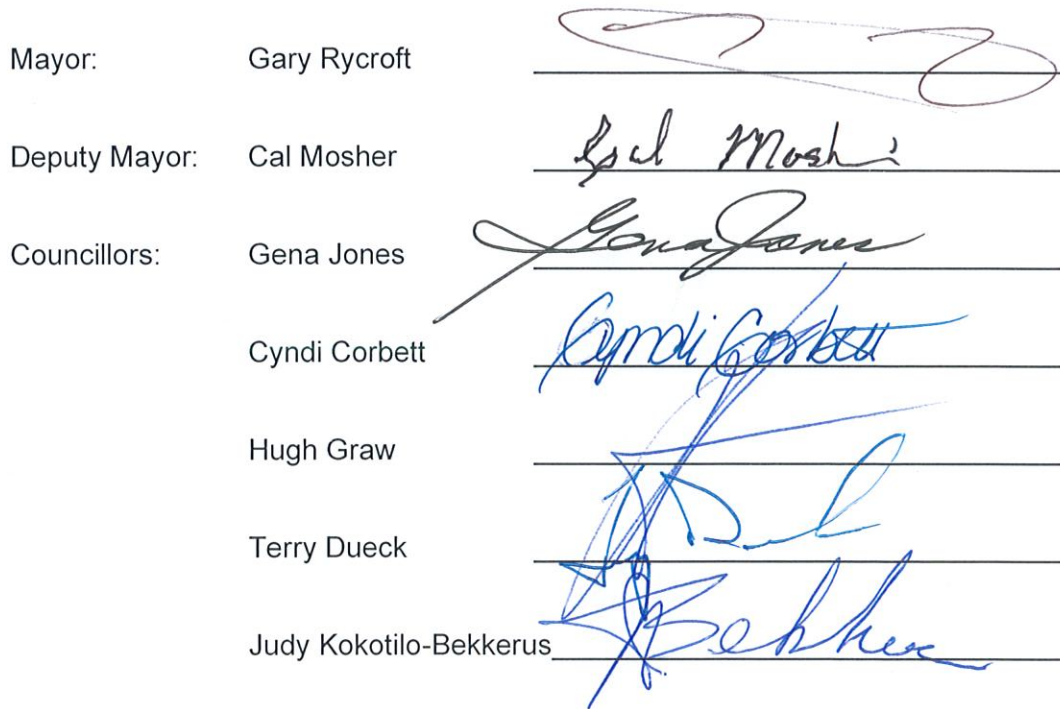 Mayor: Gary Rycroft
Deputy Mayor: Cal Mosher Mosh
Councillors: Gena Jones Gena Jones
Cyndi Corbett Cyndi Corbett
Hugh Graw
Terry Dueck
Judy Kokotilo-Bekkerus